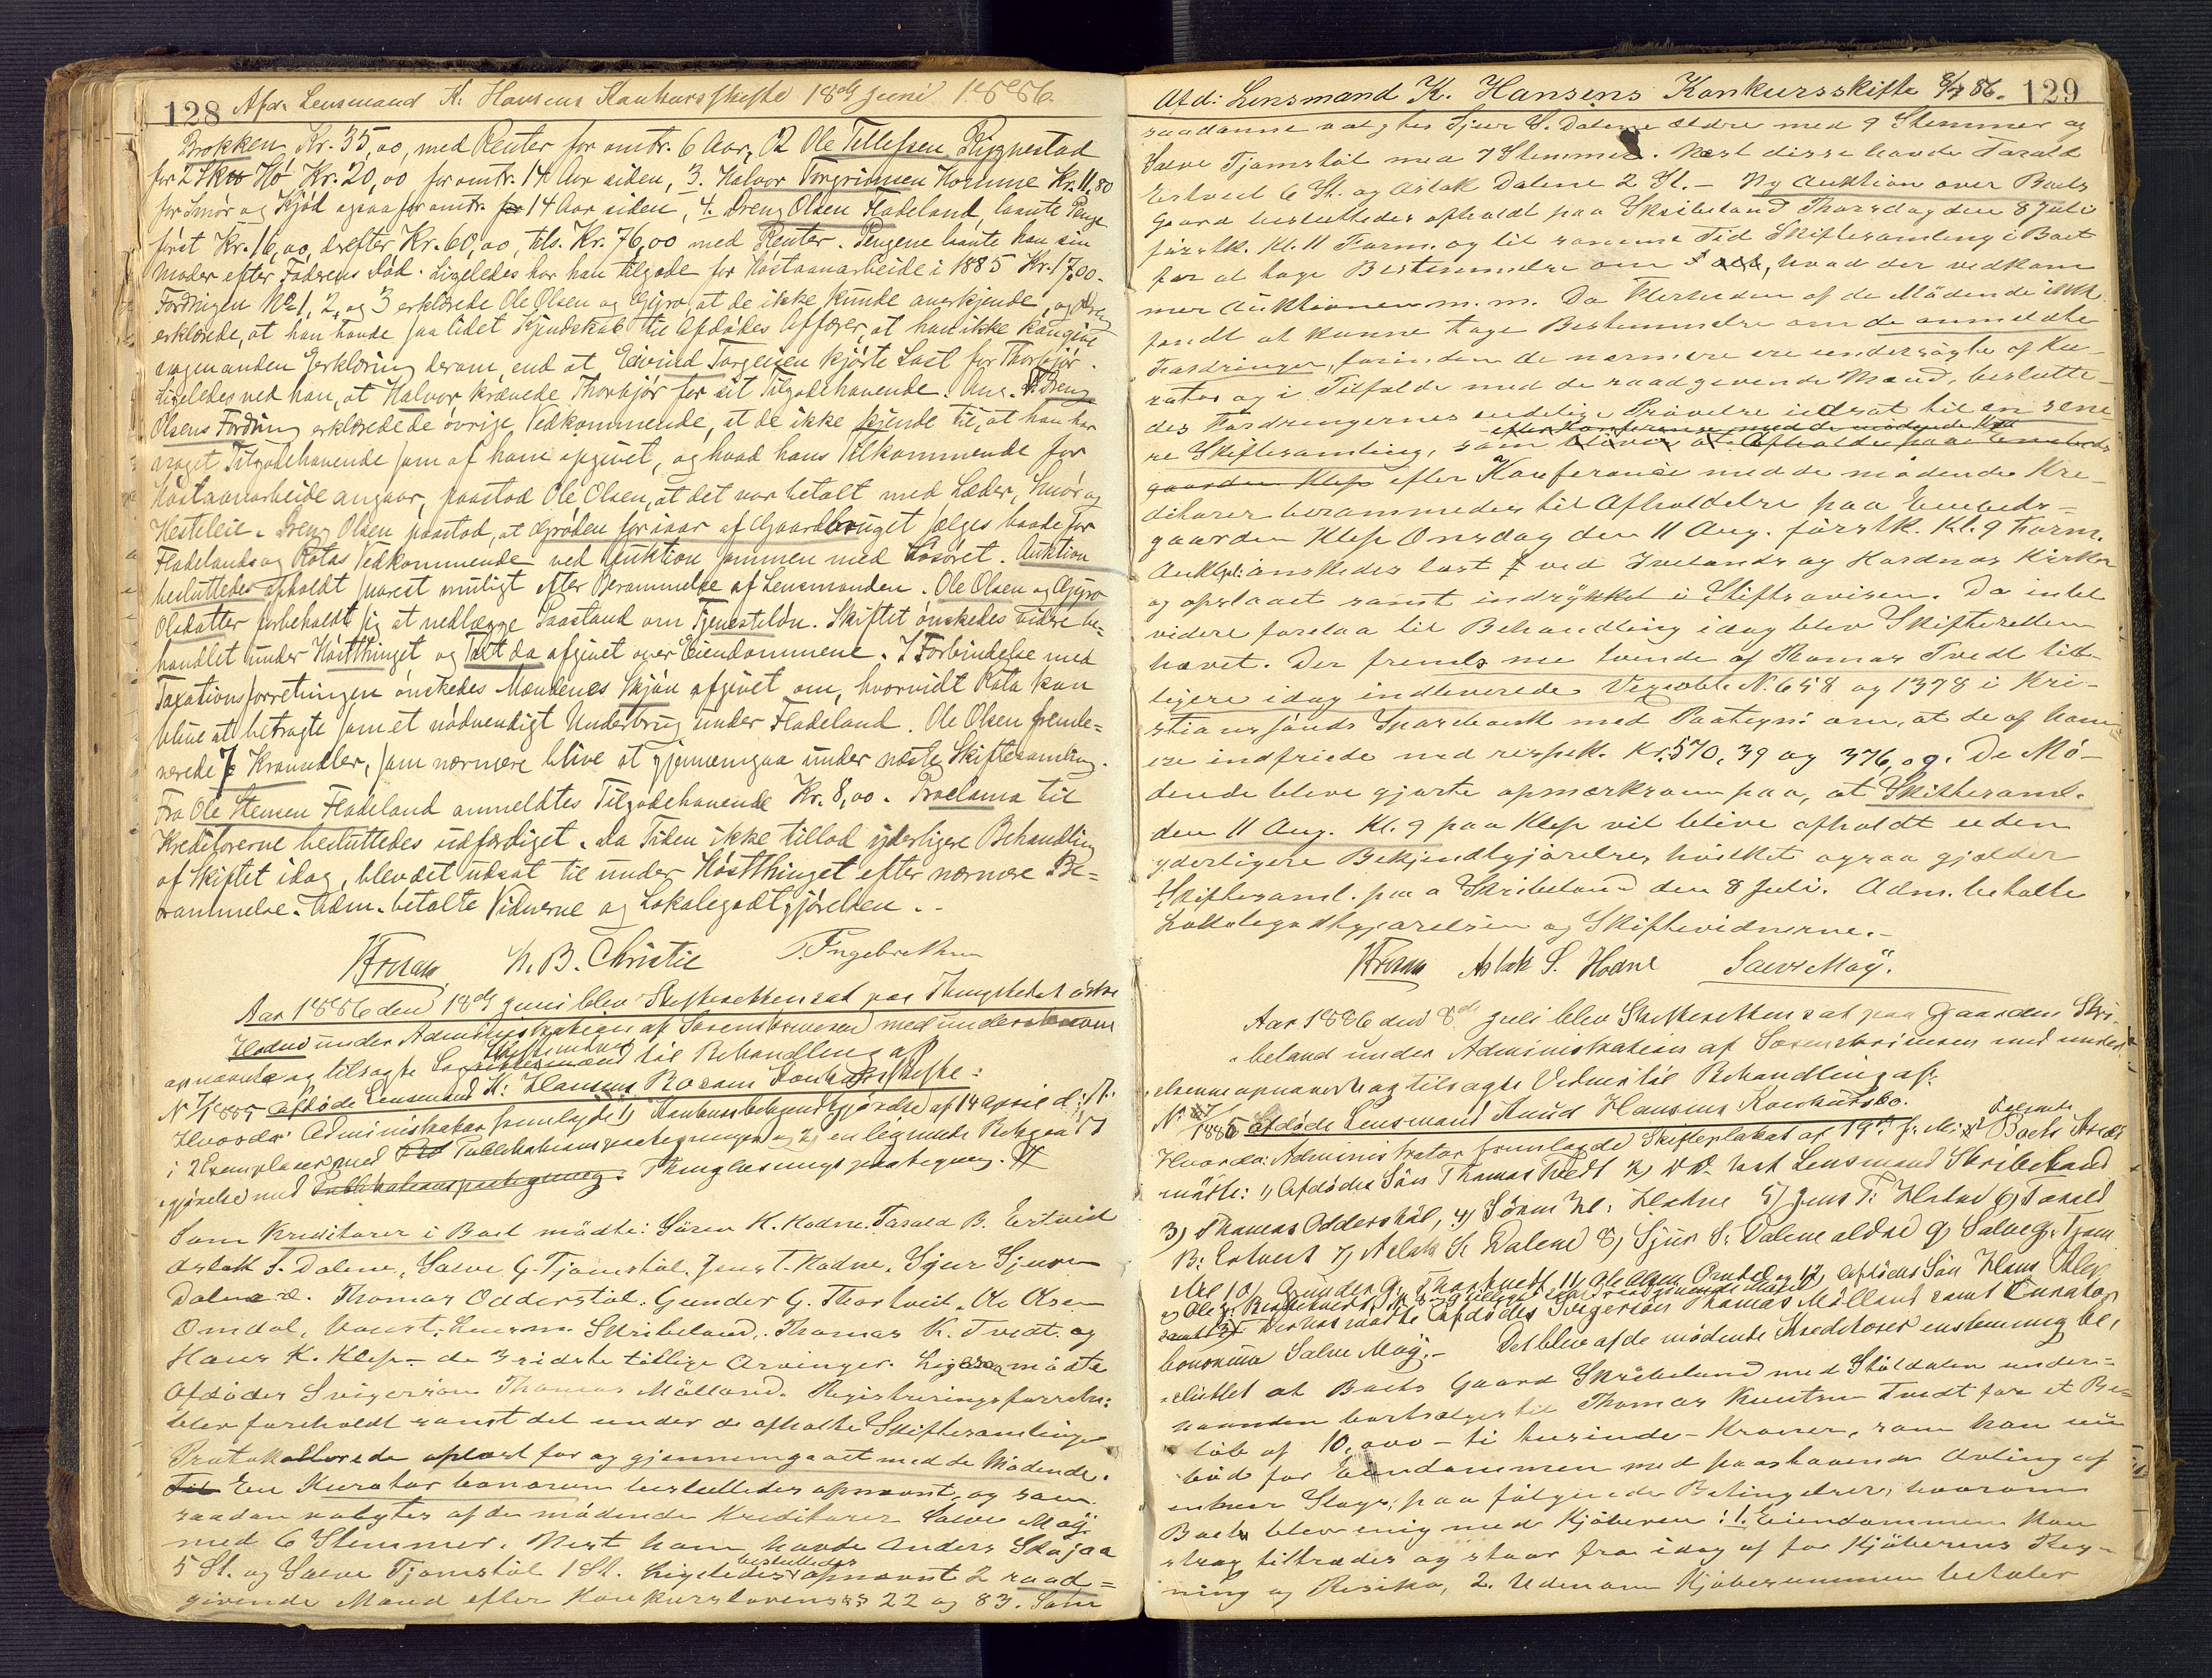 128 Afd. Lensmand K. Hansens Konkursskifte 18de Juni 1886.
Brokken, Kr. 35,00, med Renter for omtr. 6 Aar, 2 Ole Tellefsen Rygnestad
for 2 Sk Hö Kr. 20,00 for omtr. 14 Aar siden, 3. Halvor Torgrimsen Homme Kr. 11,80
for Smör og Kjöd ogsaa for omtr. 14 Aar siden, 4. Dreng Olsen Fladeland, laante Penge
först Kr. 16,00, derefter Kr. 60,00, tils. Kr. 76,00 med Renter. Pengene laante han sin
Moder efter Faderens Död. Ligeledes har han tilgode for Höstaanarbeide i 1885 Kr. 17,00.
Fordringen No 1, 2, og 3 erklærede Ole Olsen og Gyro, at de ikke kunde anerkjende, og Dreng
erklærede, at han havde saa lidet Kjendskab til Afdödes Affærer, at han ikke kan give
nogen anden Erklæring derom, end at Eivind Torgeisen kjörte Last for Thorbjör.
Ligeledes ved han, at Halvor krævede Thorbjör for sit Tilgodehavende. Ang. Dreng
Olsens Fordring erklærede de övrige Vedkommende, at de ikke kjende til, at han har
noget Tilgodehavende som af ham opgivet, og hvad hans Tilkommende for
Höstaanarbeide angaar, paastod Ole Olsen, at det var betalt med Læder, Smör og
Hesteleie. Dreng Olsen paastod, at Gröden for iaar af Gaardbruget sælges baade for
Fladelands og Rotas Vedkommende ved Auktion sammen med Lösöret. Auktion
besluttedes afholdt snarest muligt efter Berammelse af Lensmanden. Ole Olsen og Gyro
Olsdatter forbeholdt sig at nedlægge Paastand om Tjenestelön. Skiftet önskedes videre be=
handlet under Höstthinget og Taxt da afgivet over Eiendommene. I Forbindelse med
Taxationsforretningen önskedes Mændenes Skjön afgivet om, hvorvidt Rota kan
blive at betragte som et nödvendigt Underbrug under Fladeland. Ole Olsen fremle=
verede 7 Kranvdler, som nærmere blive at gjennemgaa under næste Skiftesamling.
Fra Ole Stensen Fladeland anmeldtes Tilgodehavende Kr. 8,00. Proclama til
Kreditorerne besluttedes udfærdiget. Da Tiden ikke tillod yderligere Behandling
af Skiftet idag, blev det udsat til under Höstthinget efter nærmere Be=
rammelse. Adm. betalte Vidnerne og Lokalegodtgjörelsen.
N. B. Christie T. Ingebrethsen
Aar 1886 den 18de Juni blev Skifteretten sat paa Thingstedet
Hodne under Administration af Sorenskriveren med undersk
opnævnte og tilsagte Skiftevidner til Behandling af
No 7/1885 Afdöde Lensmand K. Hansens Konkursskifte:
Hvorda Administrator fremlagde 1) Konkursbekjendtgjörelse af 14 April d. A.
i 2 Exemplarer med Publikationspaategninger og 2) en lignende Bekjendt
gjörelse med Thinglæsningspaategning.
Som Kreditorer i Boet mödte: Sören K. Hodne. Tarald B. Ertveit
Aslak S. Dalene, Salve G. Tjomstöl. Jens T. Hodne. Sjur Sjursen
Dalene æ. Thomas Odderstöl. Gunder G. Thortveit. Ole Olsen
Omdal, Const. Lensm. Skribeland. Thomas K. Tvedt og
Hans K. Klep - de 3 sidste tillige Arvinger. Ligesaa mödte
Afdödes Svigersön Thomas Mölland. Registreringsforretn:
blev foreholdt samt det under de afholdte Skiftesamlinger
Protokollerede oplæst for og gjennemgaaet med de Mödende.
En Kurator bonorum besluttedes opnævnt, og som
saadan valgtes af de mödende Kreditorer Salve Möy
med 6 Stemmer. Næst ham havde Anders Skajaa
5 St. og Salve Tjomstöl 1 St. Ligeledes besluttedes opnævnt 2 raad=
givende Mænd efter Konkurslovens §§ 22 og 83. Som
Afd: Lensmand K. Hansens Konkursskifte 8/7 86. 129
saadanne valgtes Sjur S. Dalene ældre med 9 Stemmer og
Salve Tjomstöl med 7 Stemmer. Næst disse havde Tarald
Ertveit 6 St. og Aslak Dalene 2 St. - Ny Auktion over Boets
Gaard besluttedes afholdt paa Skribeland Thorsdag den 8 Juli
förstk. Kl. 11 Form. og til samme Tid Skiftesamling i Boet
for at tage Bestemmelse om, hvad der vedkom
mer Auktionen m. m. Da Flerheden af de Mödende ikke
fandt at kunne tage Bestemmelse om de anmeldte
Fordringer, forinden de nærmere ere undersögte af Ku-
rator og i Tilfælde med de raadgivende Mænd, beslutte-
des Fordringernes endelige Prövelse udsat til en sene
re Skiftesamling, som
efter Konferance med de mödende Kre-
ditorer berammedes til Afholdelse paa Embeds-
gaarden Klep Onsdag den 11 Aug. förstk. Kl. 9 Form.
Aukt.pl: önskedes læst ved Ivelands og Hordnæs Kirker
og opslaaet samt indrykket i Stiftsavisen. Da intet
videre forelaa til Behandling idag blev Skifteretten
hævet. Der fremls me tvende af Thomas Tvedt tid-
ligere idag indleverede Vexoblr. N. 658 og 1378 i Kri-
stianssands Sparebank med Paategn: om, at de af ham
ere indfriede med respekt. Kr. 570,39 og 376,09. De Mö-
dende bleve gjorte opmærksom paa, at Skiftesaml.
den 11 Aug. Kl. 9 paa Klep vil blive afholdt uden
yderligere Bekjendtgjörelse, hvilket ogsaa gjælder
Skiftesaml. paa Skribeland den 8 Juli. Adm. betalte
Lokalegodtgjörelsen og Skiftevidnerne.-
Aslak S. Hodne Salve Möy.
Aar 1886 den 8de Juli blev Skifteretten sat paa Gaarden Skri-
beland under Administration af Sorenskriveren med under
opnævnte og tilsagte Vidner til Behandling af:
N. 7/1885 Afdöde Lensmand Knud Hansens Konkursbo.
Hvorda: Administrator fremlagde Skifteplakat af 19de f. M.
mötte: 1) Afdödes Sön Thomas Tvedt 2) Lensmand Skribeland
3) Thomas Odderstöl, 4) Sören K. Hodne 5) Jens T. Hodne 6) Tarald
B. Ertveit 7) Aslak S. Dalene 8) Sjur S. Dalene ældre 9) Salve G. Tjom
stöl 10) Gunder G. Thortveit 11) Ole Olsen Omdal og 12) Afdödes Sön Hans Klep
Desuden mödte Afdödes Svigersön Thomas Mölland samt Curator
bonorum Salve Möy.- Det blev af de mödende Kreditorer enstemmig be,
sluttet at Boets Gaard Skribeland med Stöldalen under=
haanden bortsælges til Thomas Knutsen Tvedt for et Be=
löb af 10,000 - ti tusinde - Kroner, som han nu
böd for Eiendommen med paastaaende Avling af
enhver Slags, paa fölgende Betingelser, hvorom
Boet blev enig med Kjöberen: 1. Eiendommen kan
strax tiltrædes og staar fra idag af for Kjöberens Reg-
ning og Risiko, 2. Udenom Kjöbesummen betaler